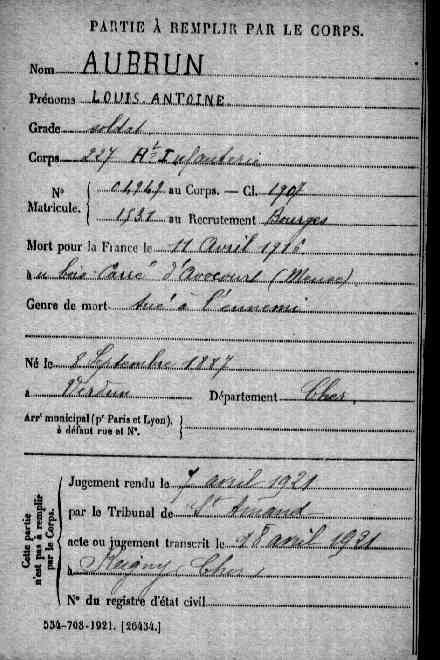 PARTIE À REMPLIR PAR LE CORPS.
Nom AUBRUN
Prénoms LOUIS ANTOINE
Grade soldat
Corps 227 Rt Infanterie
No Matricule. 04949 au Corps. — Cl. 1907
1531 au Recrutement Bourges
Mort pour la France le 11 Avril 1916
au bois Carré d'Avocourt (Meuse)
Genre de mort tué à l'ennemi
Né le 8 Septembre 1887
à Département Cher.
Arrt municipal (pr Paris et Lyon), à défaut rue et No.
Cette partie n'est pas à remplir par le Corps.
Jugement rendu le 7 avril 1921
par le Tribunal de St Amand
acte ou jugement transcrit le 18 avril 1921
à Cher
No du registre d'état civil
534-708-1921. [26434.]